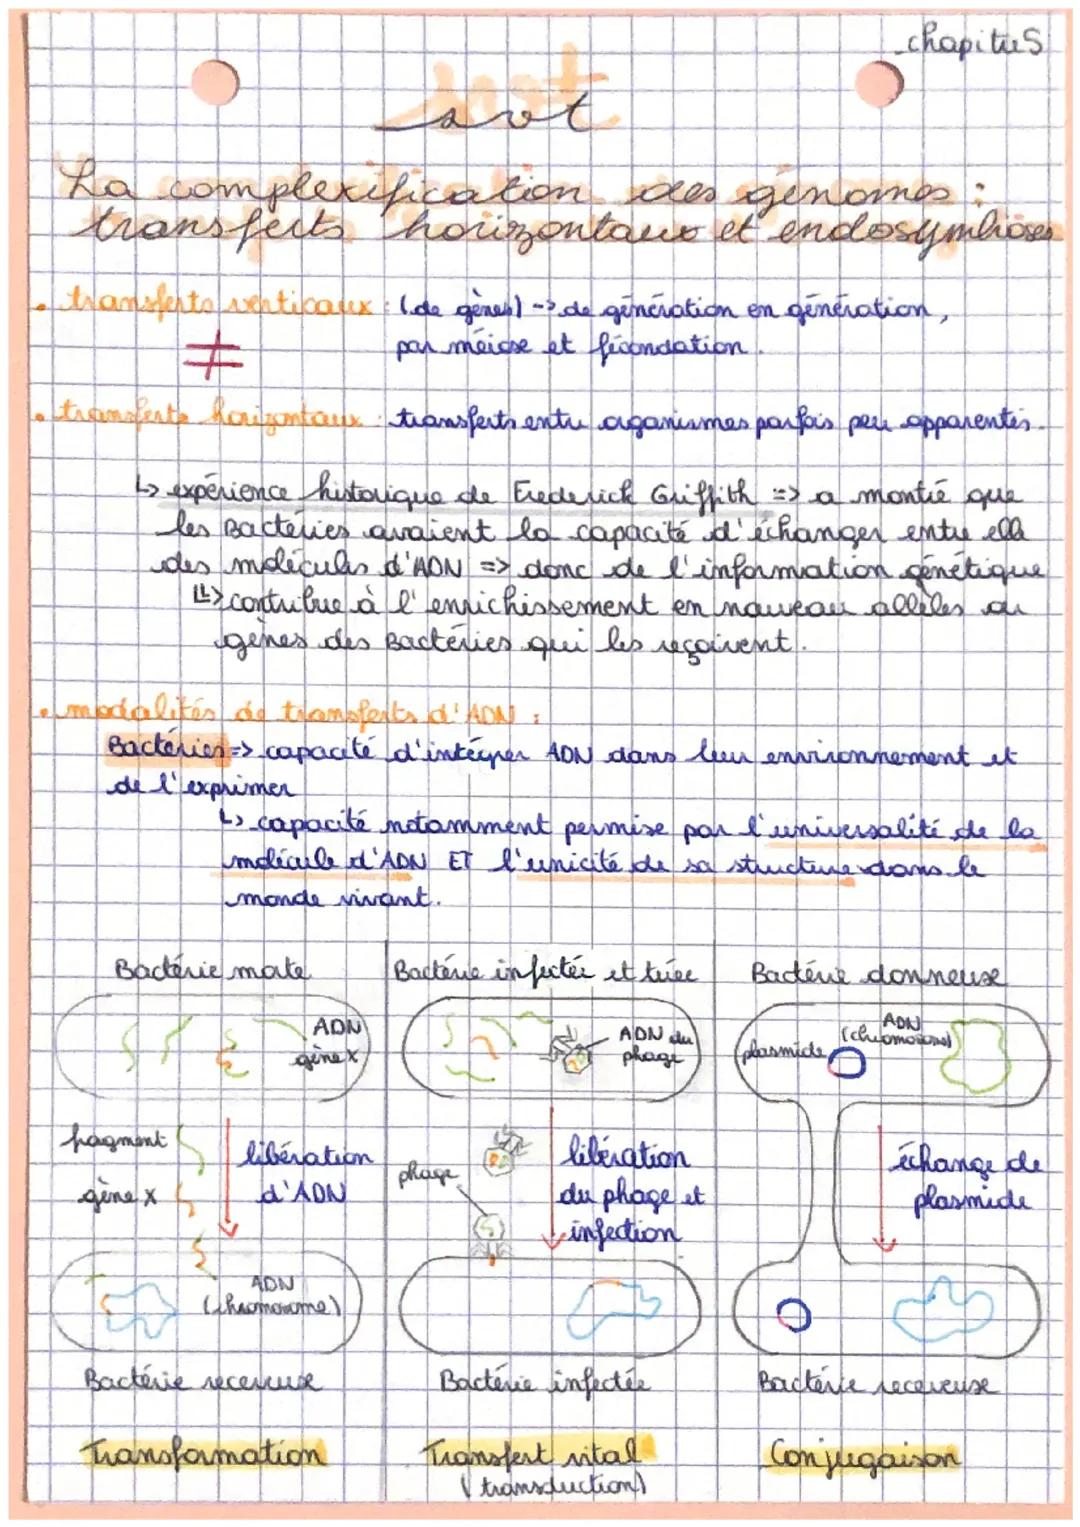 chapitre 5
svt
La complexification des génomes :
transferts horizontaux et endosymbioses
• transferts verticaux : (de gènes) -> de génération en génération,
≠ par méiose et fécondation.
• transferts horizontaux : transferts entre organismes parfois peu apparentés.
↳ expérience historique de Frederick Griffith => a montré que
les Bactéries avaient la capacité d'échanger entre elle
des molécules d'ADN => donc de l'information génétique
↳> contribue à l'enrichissement en nouveau allèles ou
gènes des Bactéries qui les reçoivent.
• modalités de transferts d'ADN :
Bactéries => capacité d'intégrer ADN dans leur environnement et
de l'exprimer
↳ capacité notamment permise par l'universalité de la
molécule d'ADN ET l'unicité de sa structure dans le
monde vivant.
Bactérie morte
ADN
gène x
fragment
gène x
libération
d'ADN
ADN
(chromosome)
Bactérie receveuse
Transformation
Bactérie infectée et tuée
ADN du
phage
phage
libération
du phage et
infection
Bactérie infectée
Transfert vital
(transduction)
Bactérie donneuse
plasmide
ADN
(chromosome)
échange de
plasmide
Bactérie receveuse
Conjugaison